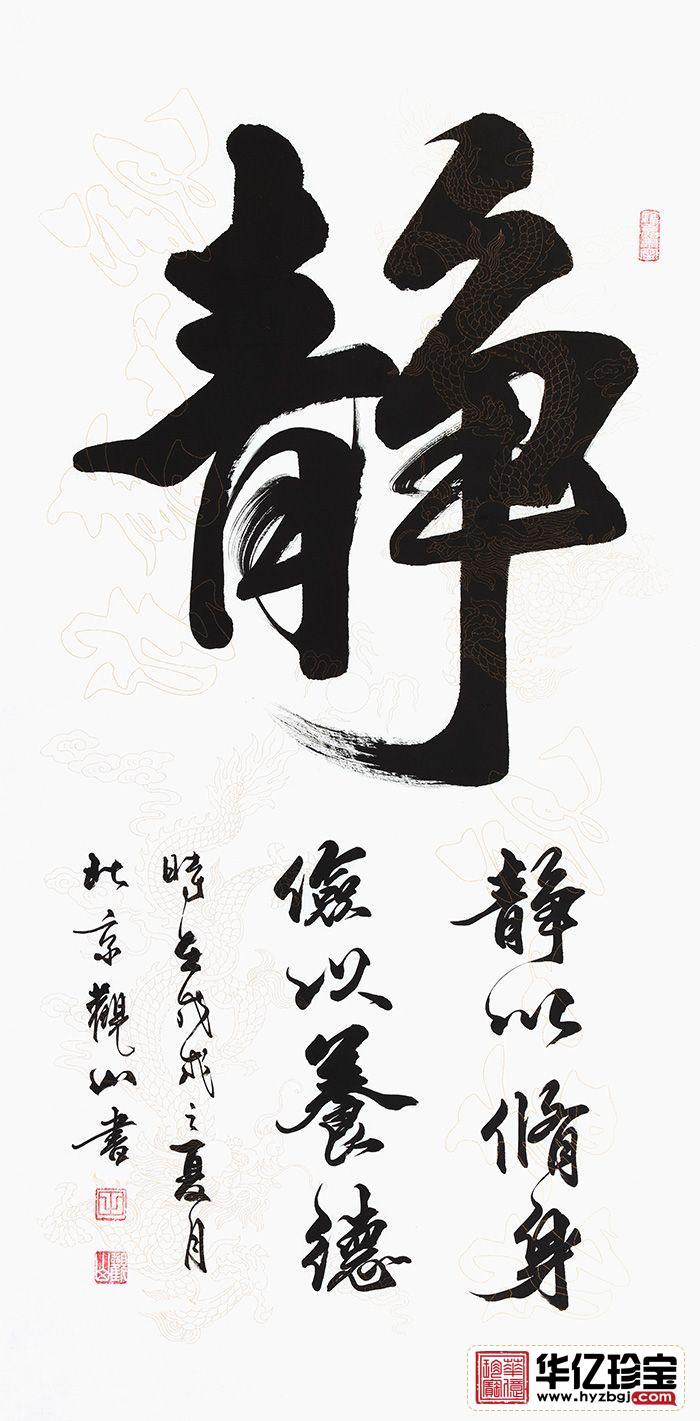 静
静以脩身
儉以養德
時在戊戌之夏月
北京觀山書
华亿珍宝
www.hyzbgj.com